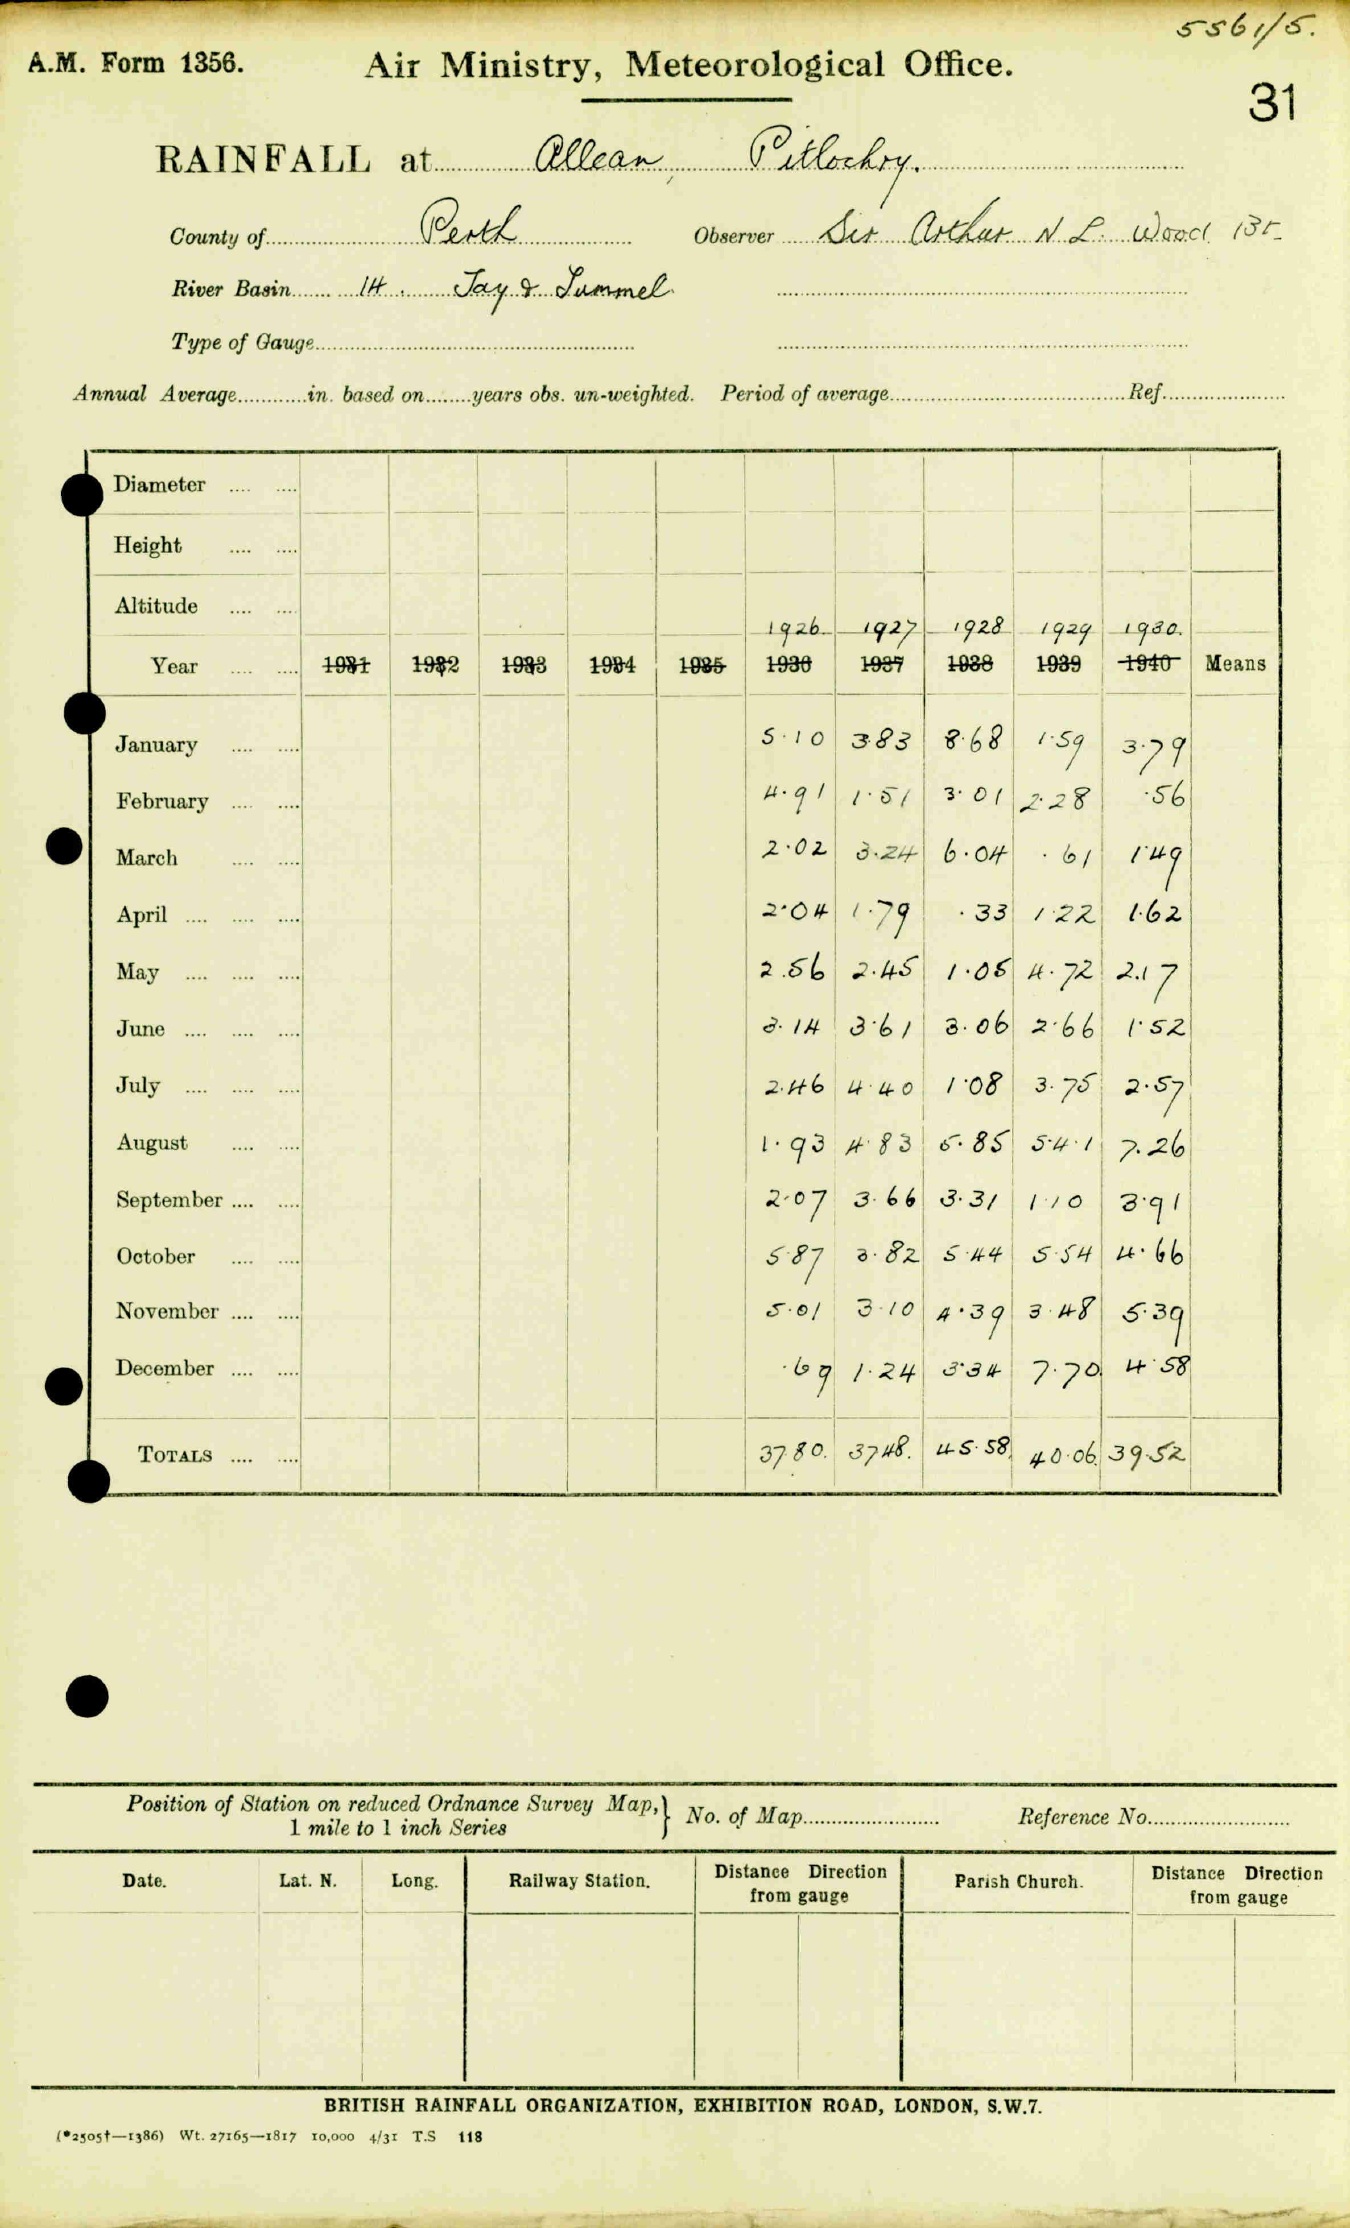 5561/5.
A.M. Form 1356. Air Ministry, Meteorological Office.
31
RAINFALL at Allean, Pitlochry.
County of Perth Observer Sir Arthur N L. Wood Bt.
River Basin 14. Tay & Tummel
Type of Gauge
Annual Average in. based on years obs. un-weighted. Period of average Ref.
Diameter
Height
Altitude
1926 1927 1928 1929 1930.
Year 1931 1932 1933 1934 1935 1936 1937 1938 1939 1940 Means
January 5.10 3.83 8.68 1.59 3.79
February 4.91 1.51 3.01 2.28 .56
March 2.02 3.24 6.04 .61 1.49
April 2.04 1.79 .33 1.22 1.62
May 2.56 2.45 1.05 4.72 2.17
June 3.14 3.61 3.06 2.66 1.52
July 2.46 4.40 1.08 3.75 2.57
August 1.93 4.83 5.85 5.41 7.26
September 2.07 3.66 3.31 1.10 3.91
October 5.87 3.82 5.44 5.54 4.66
November 5.01 3.10 4.39 3.48 5.39
December .69 1.24 3.34 7.70 4.58
TOTALS 37.80. 37.48. 45.58. 40.06. 39.52
Position of Station on reduced Ordnance Survey Map, } No. of Map Reference No.
1 mile to 1 inch Series
Date. Lat. N. Long. Railway Station. Distance Direction Parish Church. Distance Direction
from gauge from gauge
BRITISH RAINFALL ORGANIZATION, EXHIBITION ROAD, LONDON, S.W.7.
(*2505†—1386) Wt. 27165—1817 10,000 4/31 T.S 118